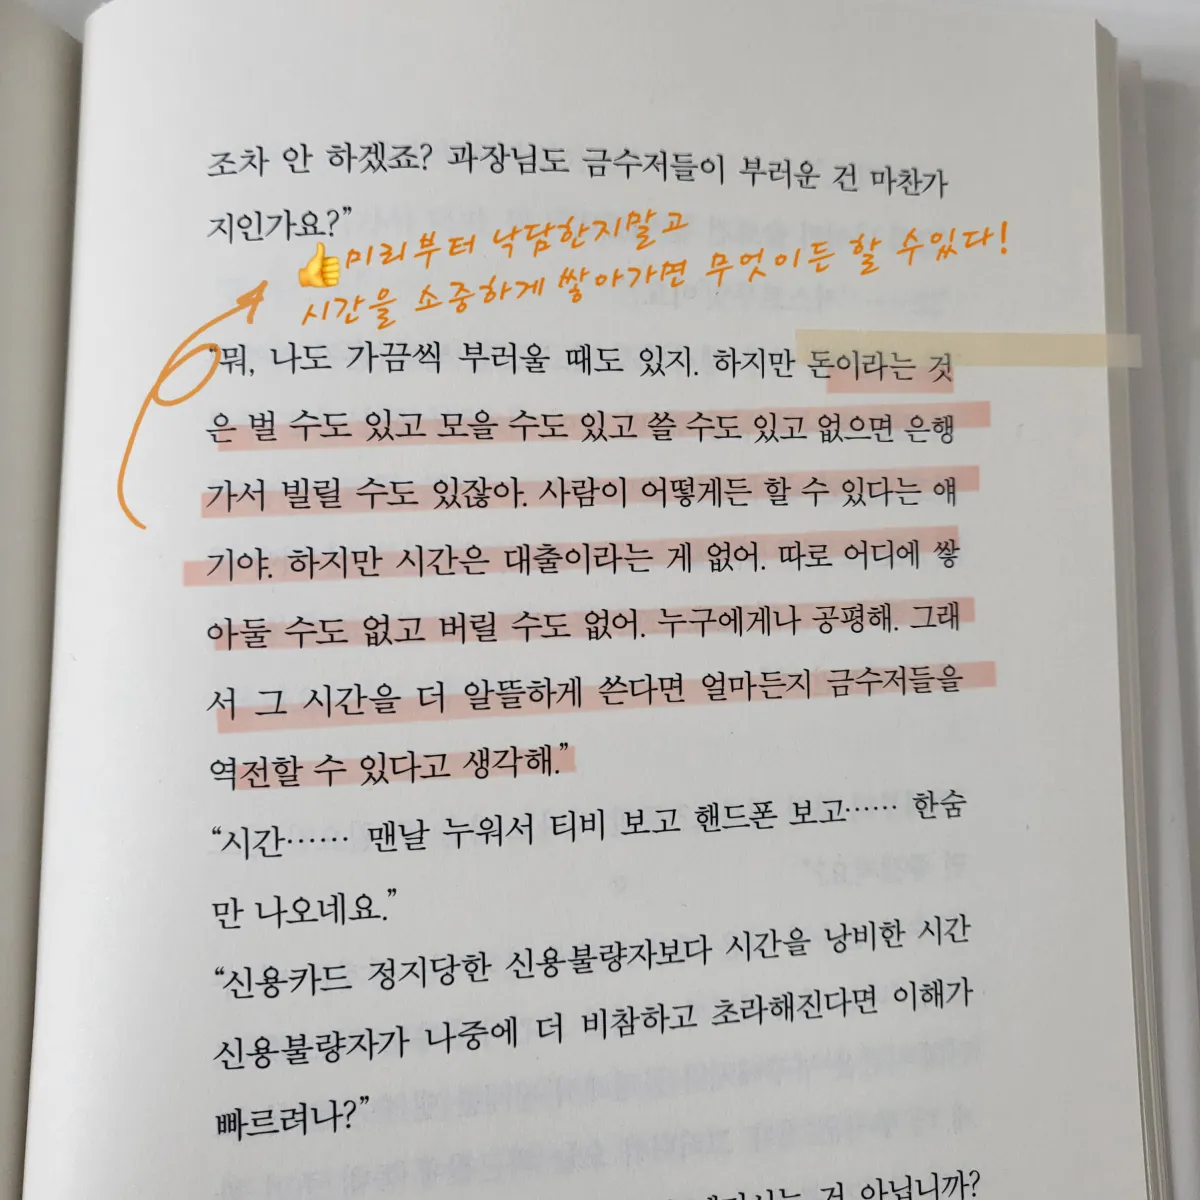 조차 안 하겠죠? 과장님도 금수저들이 부러운 건 마찬가
지인가요?”
미리부터 낙담한지말고
시간을 소중하게 쌓아가면 무엇이든 할 수있다!
“뭐, 나도 가끔씩 부러울 때도 있지. 하지만 돈이라는 것
은 벌 수도 있고 모을 수도 있고 쓸 수도 있고 없으면 은행
가서 빌릴 수도 있잖아. 사람이 어떻게든 할 수 있다는 얘
기야. 하지만 시간은 대출이라는 게 없어. 따로 어디에 쌓
아둘 수도 없고 버릴 수도 없어. 누구에게나 공평해. 그래
서 그 시간을 더 알뜰하게 쓴다면 얼마든지 금수저들을
역전할 수 있다고 생각해.”
“시간…… 맨날 누워서 티비 보고 핸드폰 보고…… 한숨
만 나오네요.”
“신용카드 정지당한 신용불량자보다 시간을 낭비한 시간
신용불량자가 나중에 더 비참하고 초라해진다면 이해가
빠르려나?”
건 아닙니까?